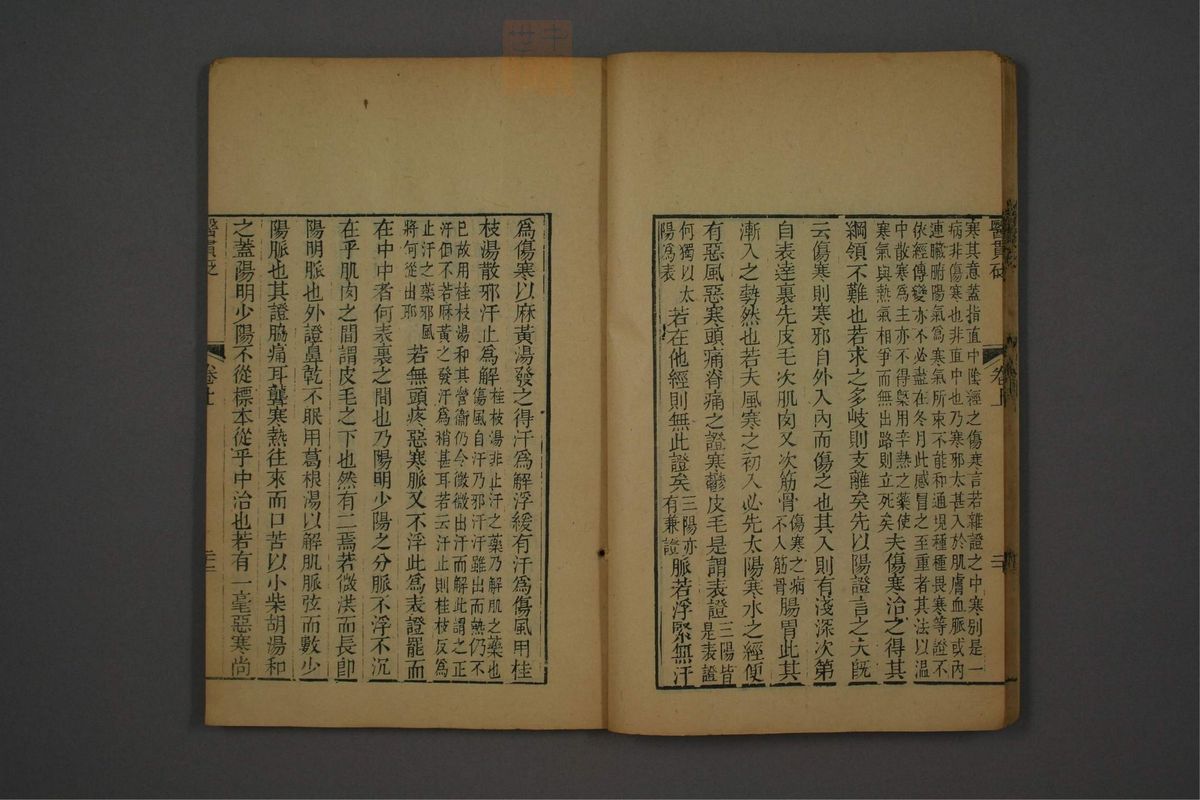 寒其意蓋指直中陰經之傷寒言若雜證之中寒別是一
病非傷寒也非直中也乃寒邪太甚入於肌膚血脈或內
連臟腑陽氣爲寒氣所束不能和通現種種畏寒等證不
依經傳變亦不必盡在冬月此感冒之至重者其法以溫
中散寒爲主亦不得槩用辛熱之藥使
寒氣與熱氣相爭而無出路則立死矣夫傷寒治之得其
綱領不難也若求之多岐則支離矣先以陽證言之夫旣
云傷寒則寒邪自外入內而傷之也其入則有淺深次第
自表達裏先皮毛次肌肉又次筋骨傷寒之病不入筋骨腸胃此其
漸入之勢然也若夫風寒之初入必先太陽寒水之經便
有惡風惡寒頭痛脊痛之證寒鬱皮毛是謂表證三陽皆是表證
何獨以太陽爲表若在他經則無此證矣三陽亦有兼證脈若浮緊無汗
爲傷寒以麻黃湯發之得汗爲解浮緩有汗爲傷風用桂
枝湯散邪汗止爲解桂枝湯非止汗之藥乃解肌之藥也傷風自汗乃邪汗汗雖出而熱仍不
已故用桂枝湯和其營衞仍令微微出汗而解此謂之正
汗但不若麻黃之發汗爲稍甚耳若云汗止則桂枝反爲
止汗之藥邪風將何從出耶若無頭疼惡寒脈又不浮此爲表證罷而
在中中者何表裏之間也乃陽明少陽之分脈不浮不沉
在乎肌肉之間謂皮毛之下也然有二焉若微洪而長卽
陽明脈也外證鼻乾不眠用葛根湯以解肌脈弦而數少
陽脈也其證脇痛耳聾寒熱往來而口苦以小柴胡湯和
之蓋陽明少陽不從標本從乎中治也若有一毫惡寒尚
醫貫砭
卷上